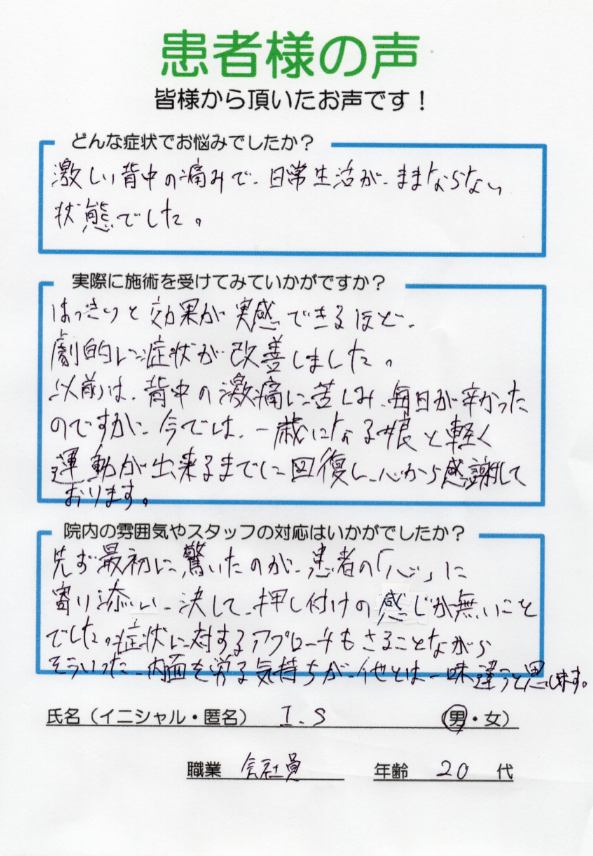 患者様の声
皆様から頂いたお声です！
どんな症状でお悩みでしたか？
激しい背中の痛みで、日常生活が、ままならない
状態でした。
実際に施術を受けてみていかがですか？
はっきりと効果が実感できるほど、
劇的に症状が改善しました。
以前は、背中の激痛に苦しみ、毎日が辛かった
のですが、今では、一歳になる娘と軽く
運動が出来るまでに回復し、心から感謝して
おります。
院内の雰囲気やスタッフの対応はいかがでしたか？
先ず最初に驚いたのが、患者の「心」に
寄り添い、決して、押し付けの感じが無いこと
でした。症状に対するアプローチもさることながら
そういった、内面を労る気持ちが、他とは一味違うと思います。
氏名（イニシャル・匿名） I.S （男・女）
職業 会社員 年齢 20 代